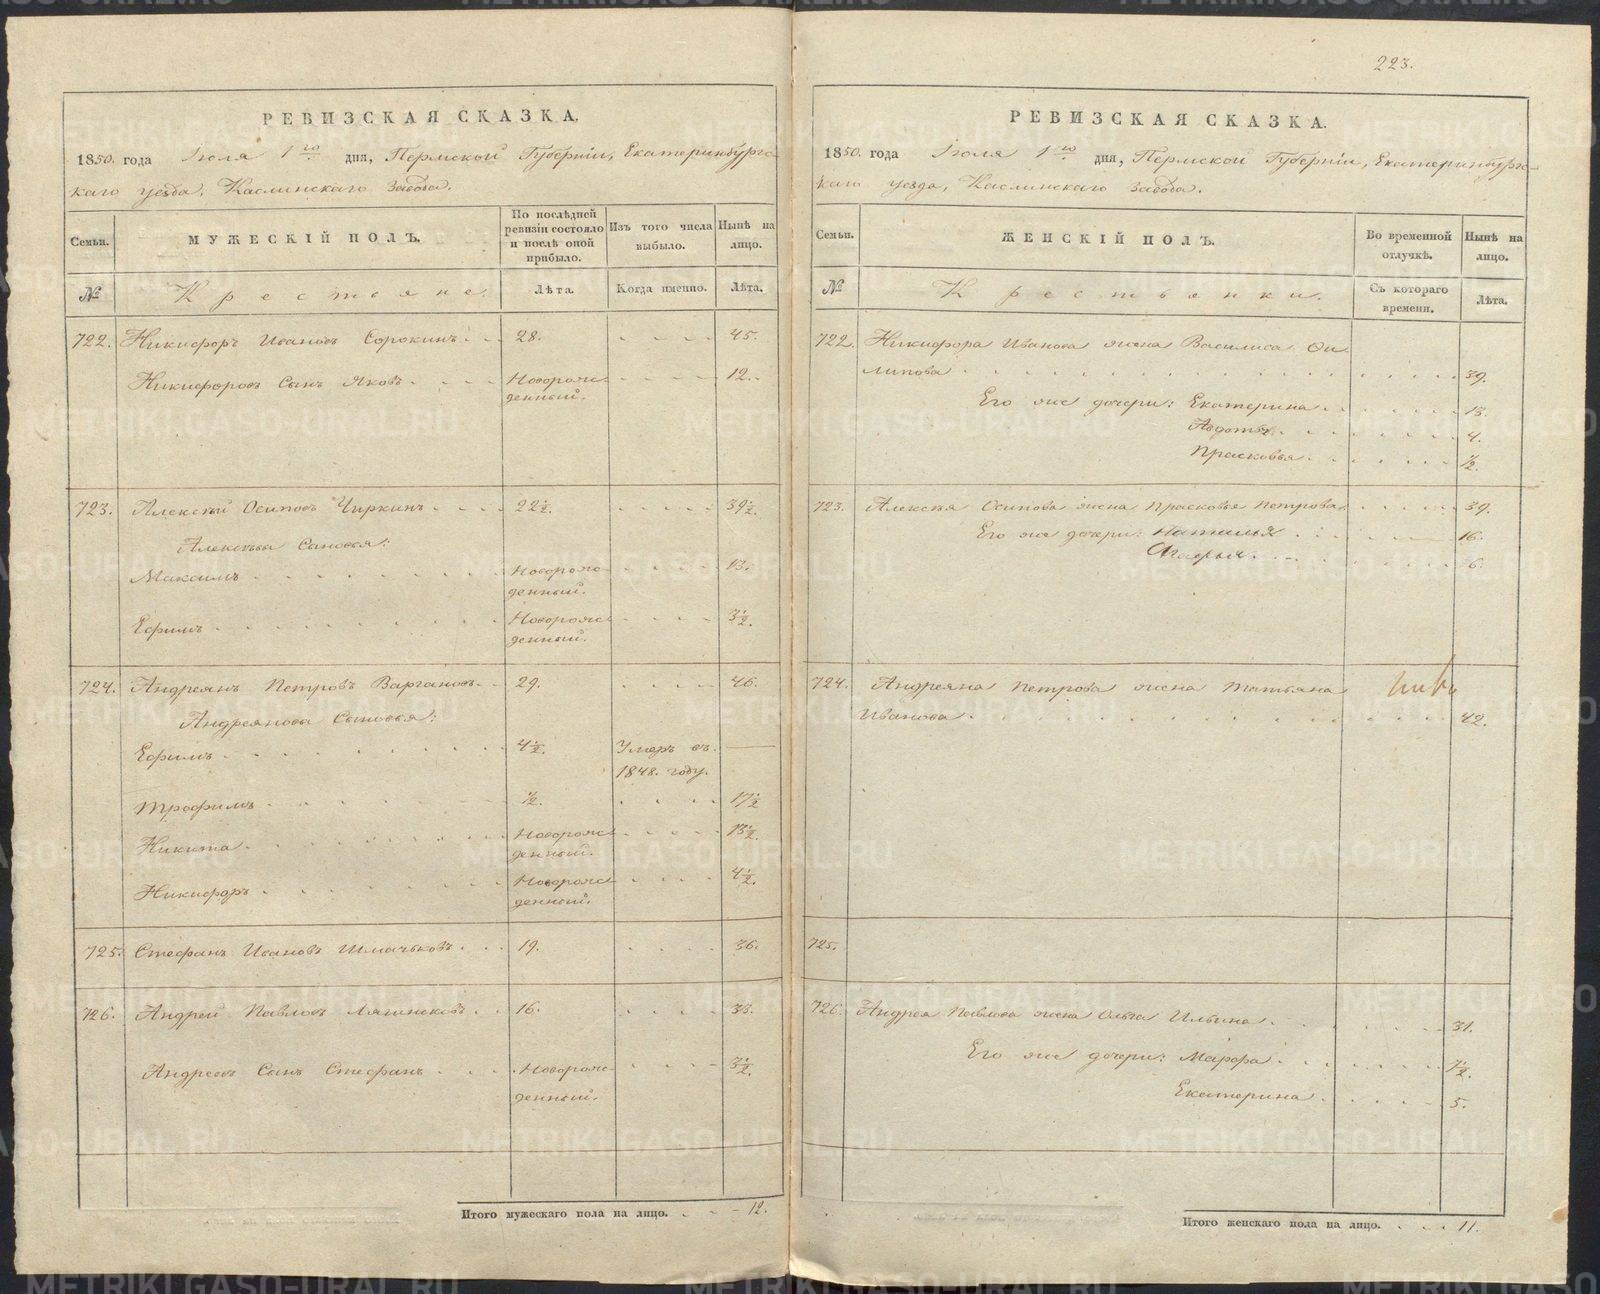 223.
РЕВИЗСКАЯ СКАЗКА.
1850. года Іюля 1го дня, Пермской Губерніи, Екатеринбургс-
каго уезда, Каслинскаго Завода.
Семьи.
МУЖЕСКІЙ ПОЛЪ.
По послѣдней ревизіи состояло и послѣ оной прибыло.
Изъ того числа выбыло.
Нынѣ на лицо.
№
Крестьяне.
Лѣта.
Когда именно.
Лѣта.
722. Никифоръ Ивановъ Сорокинъ 28. 45.
Никифоровъ Сынъ Яковъ Новорож- 12.
денный.
723. Алексѣй Осиповъ Чиркинъ 22½. 39½.
Алексѣва Сыновья:
Максимъ Новорож- 13.
денный.
Ефимъ Новорож- 3½.
денный.
724. Андреянъ Петровъ Вargановъ 29. 46.
Андреянова Сыновья:
Ефимъ 4½. Умеръ въ
1848. году.
Трофимъ ½. 17½
Никита Новорож- 13½.
денный.
Никифоръ Новорож- 4½.
денный.
725. Стефанъ Ивановъ 19. 36.
726. Андрей Павловъ 16. 33.
Андреевъ Сынъ Стефанъ Новорож- 3½.
денный.
Итого мужескаго пола на лицо. 12.
РЕВИЗСКАЯ СКАЗКА.
1850. года Іюля 1го дня, Пермской Губерніи, Екатеринбургс-
каго уезда, Каслинскаго Завода.
Семьи.
ЖЕНСКІЙ ПОЛЪ.
Во временной отлучкѣ.
Нынѣ на лицо.
№
Крестьянки.
Съ котораго времени.
Лѣта.
722. Никифора Иванова жена Василиса Фи
липова 39.
Его же дочери: Екатерина 13.
Авдотья 4.
Прасковья ½.
723. Алексѣя Осипова жена Прасковья Петрова 39.
Его же дочери: Наталья 16.
Агафья 6.
724. Андреяна Петрова жена Татьяна
Иванова 42.
725.
726. Андрея Павлова жена Ольга Ильина 31.
Его же дочери: Марфа 7½.
Екатерина 5.
Итого женскаго пола на лицо. 11.
METRIKI.GASO-URAL.RU